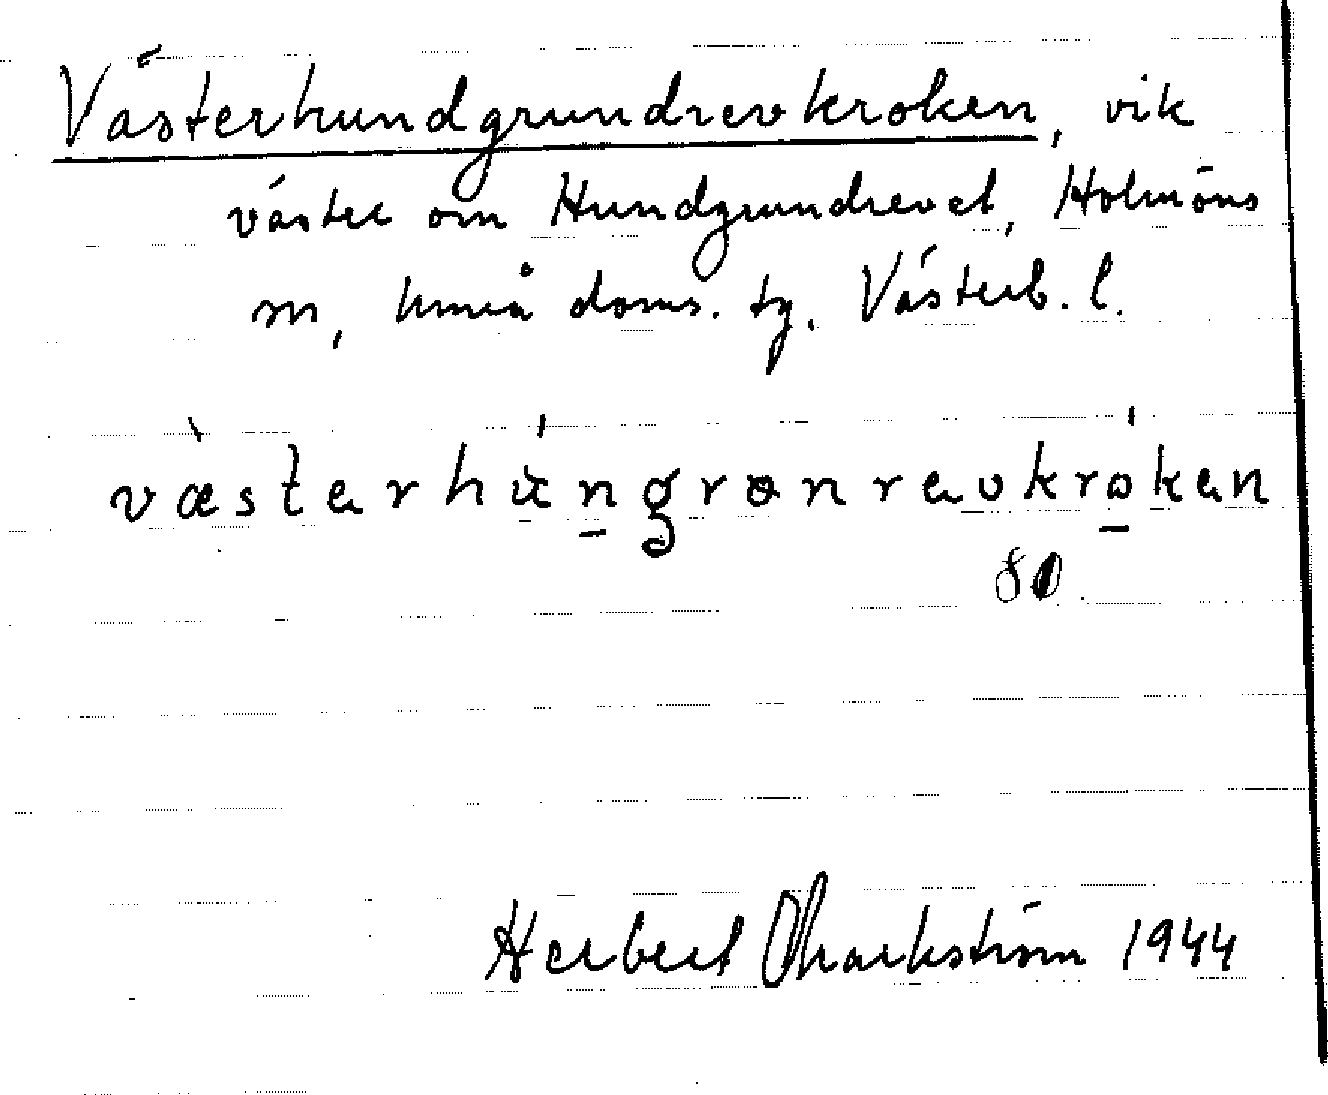 Västerhundgrundrevkroken, vik
väster om Hundgrundrevet, Holmöns
m, Umeå doms. tg. Västerb. l.
västerhungronrevkroken
80
Herbert Markström 1944